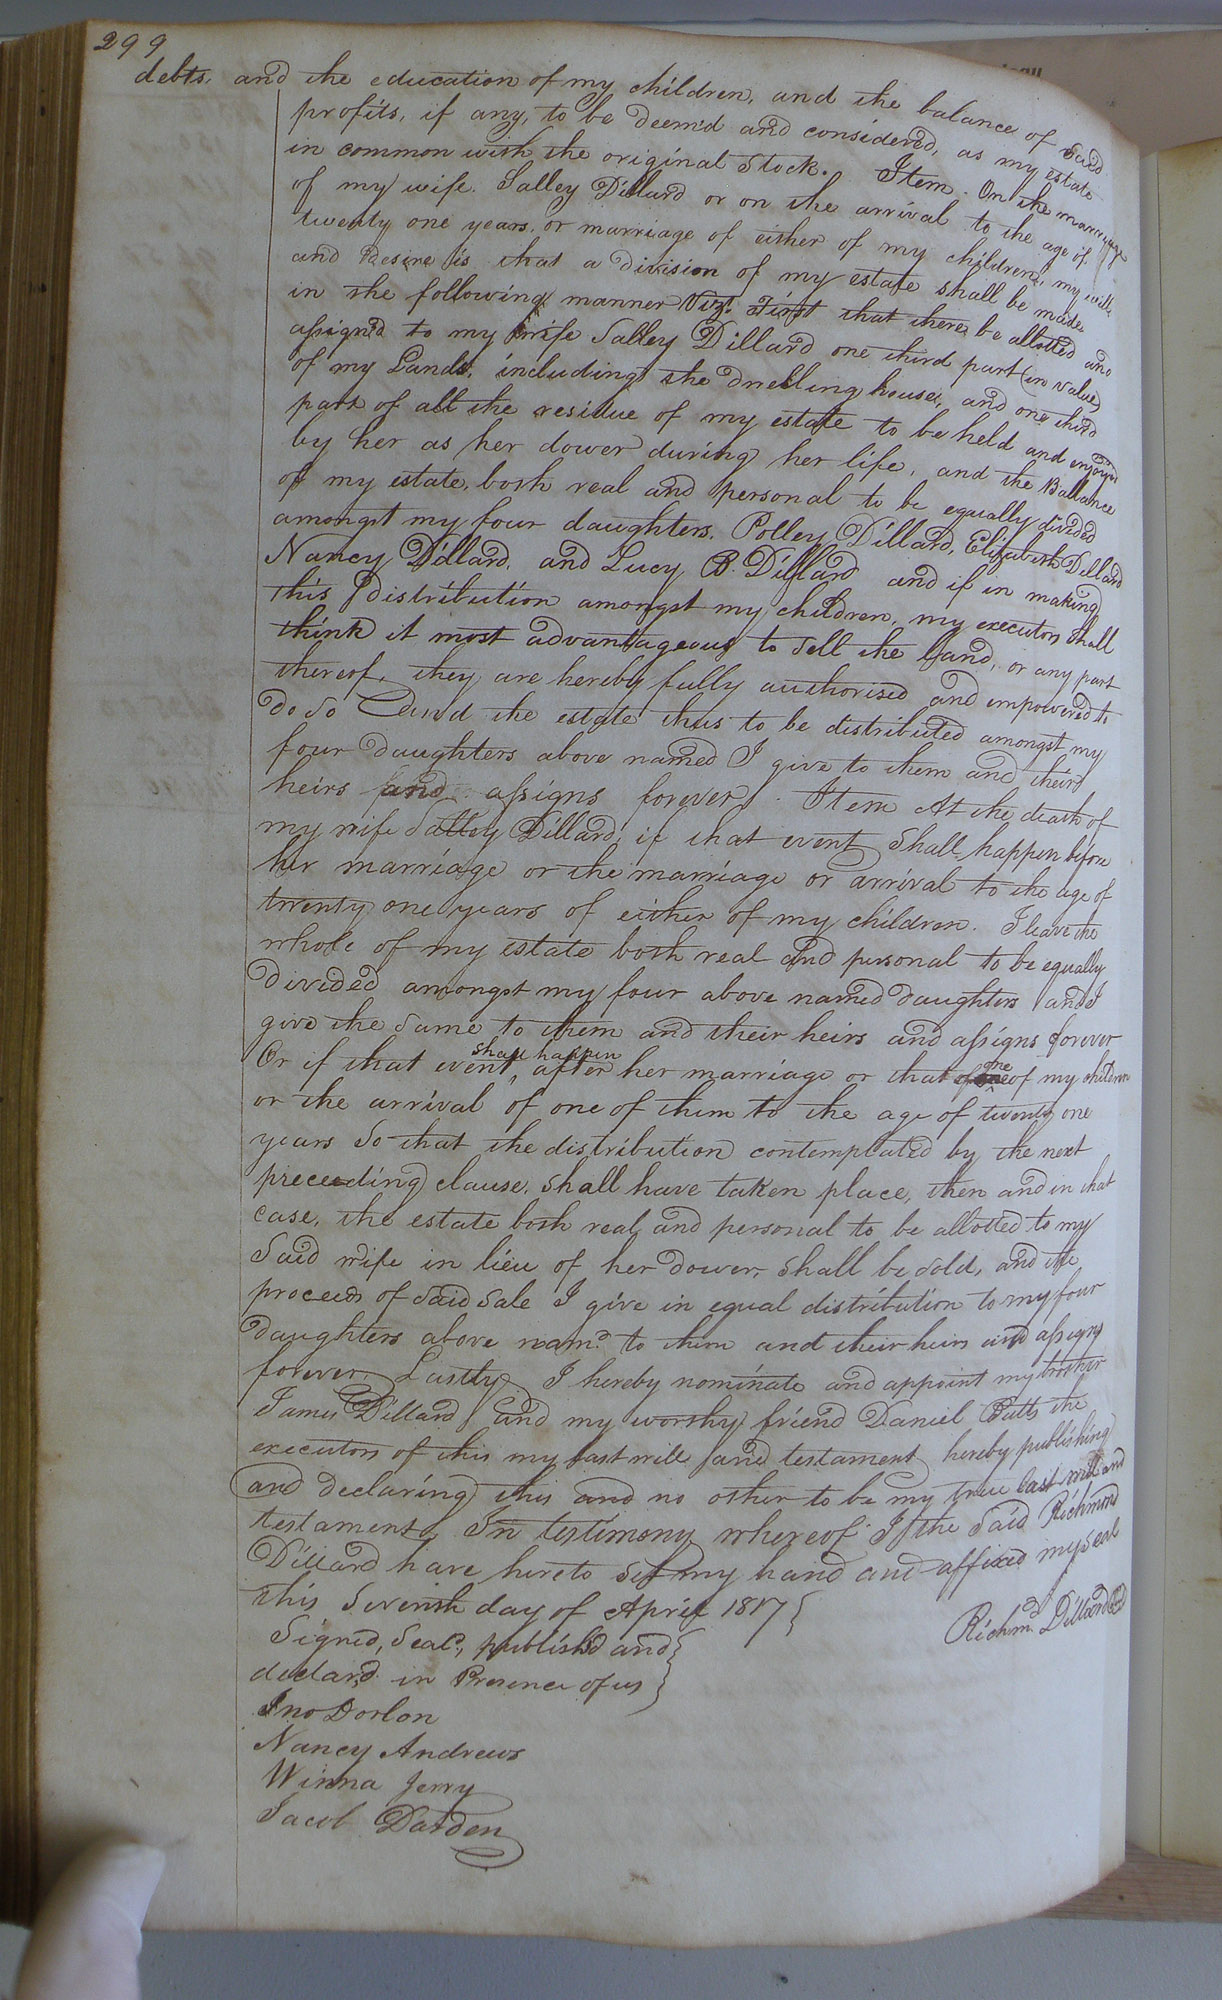 299
debts, and the education of my children, and the balance of said
profits, if any, to be deem'd and considered, as my estate
in common with the original Stock. Item. On the marriage
of my wife Salley Dillard or on the arrival to the age of
twenty one years, or marriage of either of my children, my will
and desire is that a division of my estate shall be made
in the following manner Viz.t First that there be allotted and
assign'd to my wife Salley Dillard one third part (in value)
of my Lands, including the dwelling house, and one third
part of all the residue of my estate to be held and enjoyed
by her as her dower during her life, and the Ballance
of my estate, both real and personal to be equally divided
amongst my four daughters. Polley Dillard, Elizabeth Dillard
Nancy Dillard, and Lucy B. Dillard and if in making
this distribution amongst my children, my executors shall
think it most advantageous to sell the land, or any part
thereof, they are hereby fully authorised and empowered to
do so and the estate thus to be distributed amongst my
four daughters above named I give to them and their
heirs and assigns forever. Item At the death of
my wife Salley Dillard, if that event shall happen before
her marriage or the marriage or arrival to the age of
twenty one years of either of my children. I leave the
whole of my estate both real and personal to be equally
divided amongst my four above named daughters and I
give the same to them and their heirs and assigns forever
Or if that event shall happen after her marriage or that of one of my children
or the arrival of one of them to the age of twenty one
years so that the distribution contemplated by the next
preceeding clause, shall have taken place, then and in that
case, the estate both real and personal to be allotted to my
said wife in lieu of her dower, shall be sold, and the
proceeds of said sale I give in equal distribution to my four
daughters above nam.d to them and their heirs and assigns
forever. Lastly I hereby nominate and appoint my brother
James Dillard and my worthy friend Daniel Butts the
executors of this my last will and testament hereby publishing
and declaring this and no other to be my true last will and
testament. In testimony whereof I the said Richmond
Dillard have hereto set my hand and affixed my seal
this Seventh day of April 1817
Richm.d Dillard Seal
Signed, Seal.d, publish'd and
declar'd in Presence of us
Jno Dorlon
Nancy Andrews
Winna Jerry
Jacob Darden